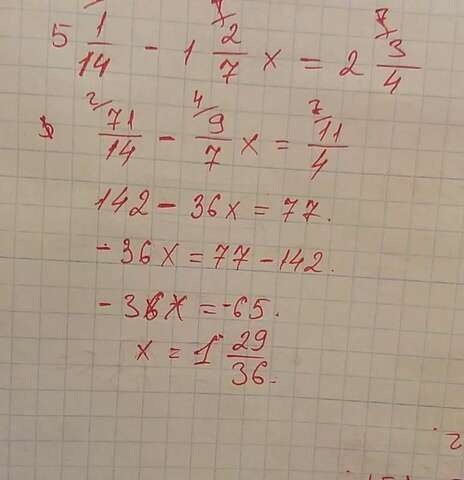 5 1/14 - 1 2/7 x = 2 3/4
2/ 71/14 - 4/ 9/7 x = 7/ 11/4
142 - 36x = 77.
-36x = 77 - 142.
-36x = -65.
x = 1 29/36.